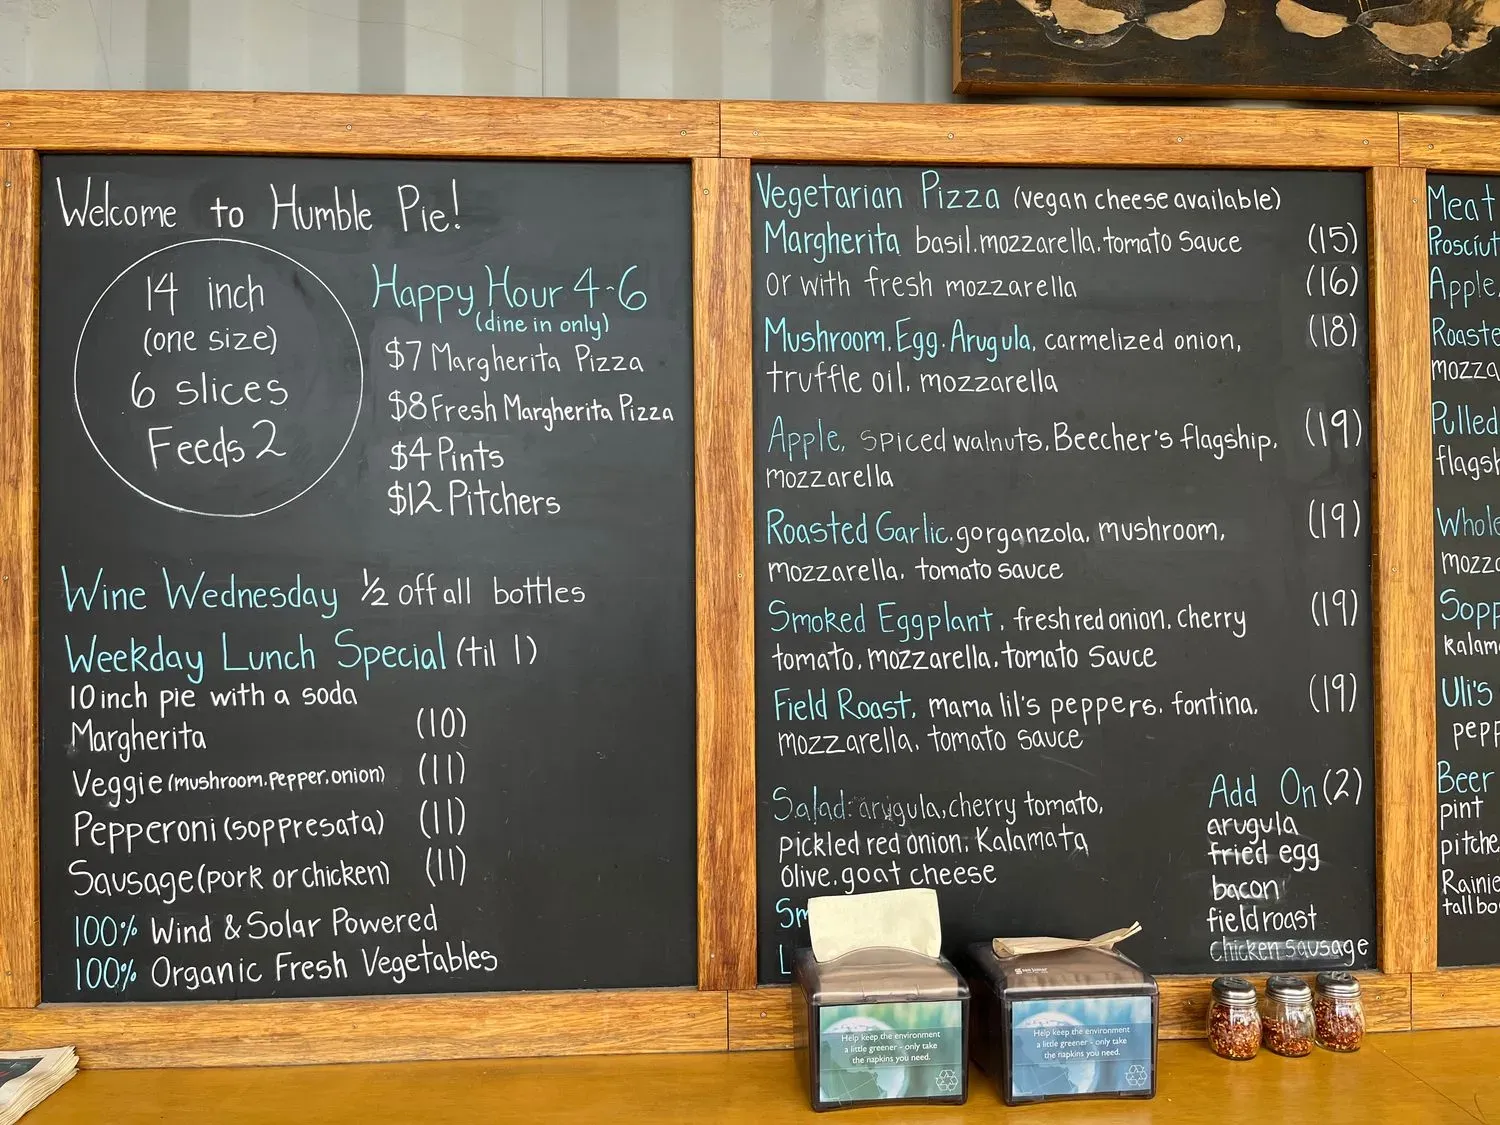 Welcome to Humble Pie!
14 inch
(one size)
6 slices
Feeds 2
Happy Hour 4-6
(dine in only)
$7 Margherita Pizza
$8 Fresh Margherita Pizza
$4 Pints
$12 Pitchers
Wine Wednesday ½ off all bottles
Weekday Lunch Special (til 1)
10 inch pie with a soda
Margherita (10)
Veggie (mushroom, pepper, onion) (11)
Pepperoni (soppresata) (11)
Sausage (pork or chicken) (11)
100% Wind & Solar Powered
100% Organic Fresh Vegetables
Vegetarian Pizza (vegan cheese available)
Margherita basil, mozzarella, tomato sauce (15)
or with fresh mozzarella (16)
Mushroom, Egg, Arugula, carmelized onion, (18)
truffle oil, mozzarella
Apple, spiced walnuts, Beecher's flagship, (19)
mozzarella
Roasted Garlic, gorganzola, mushroom, (19)
mozzarella, tomato sauce
Smoked Eggplant, fresh red onion, cherry (19)
tomato, mozzarella, tomato sauce
Field Roast, mama lil's peppers, fontina, (19)
mozzarella, tomato sauce
Salad: arugula, cherry tomato,
pickled red onion, Kalamata
olive, goat cheese
Sm
L
Add On (2)
arugula
fried egg
bacon
field roast
chicken sausage
Meat
Prosciut
Apple,
Roaste
mozza
Pulled
flagsh
Whole
mozza
Sopp
kalam
Uli's
pepp
Beer
pint
pitche
Rainie
tall bo
Help keep the environment
a little greener - only take
the napkins you need.
san jamar
Help keep the environment
a little greener - only take
the napkins you need.